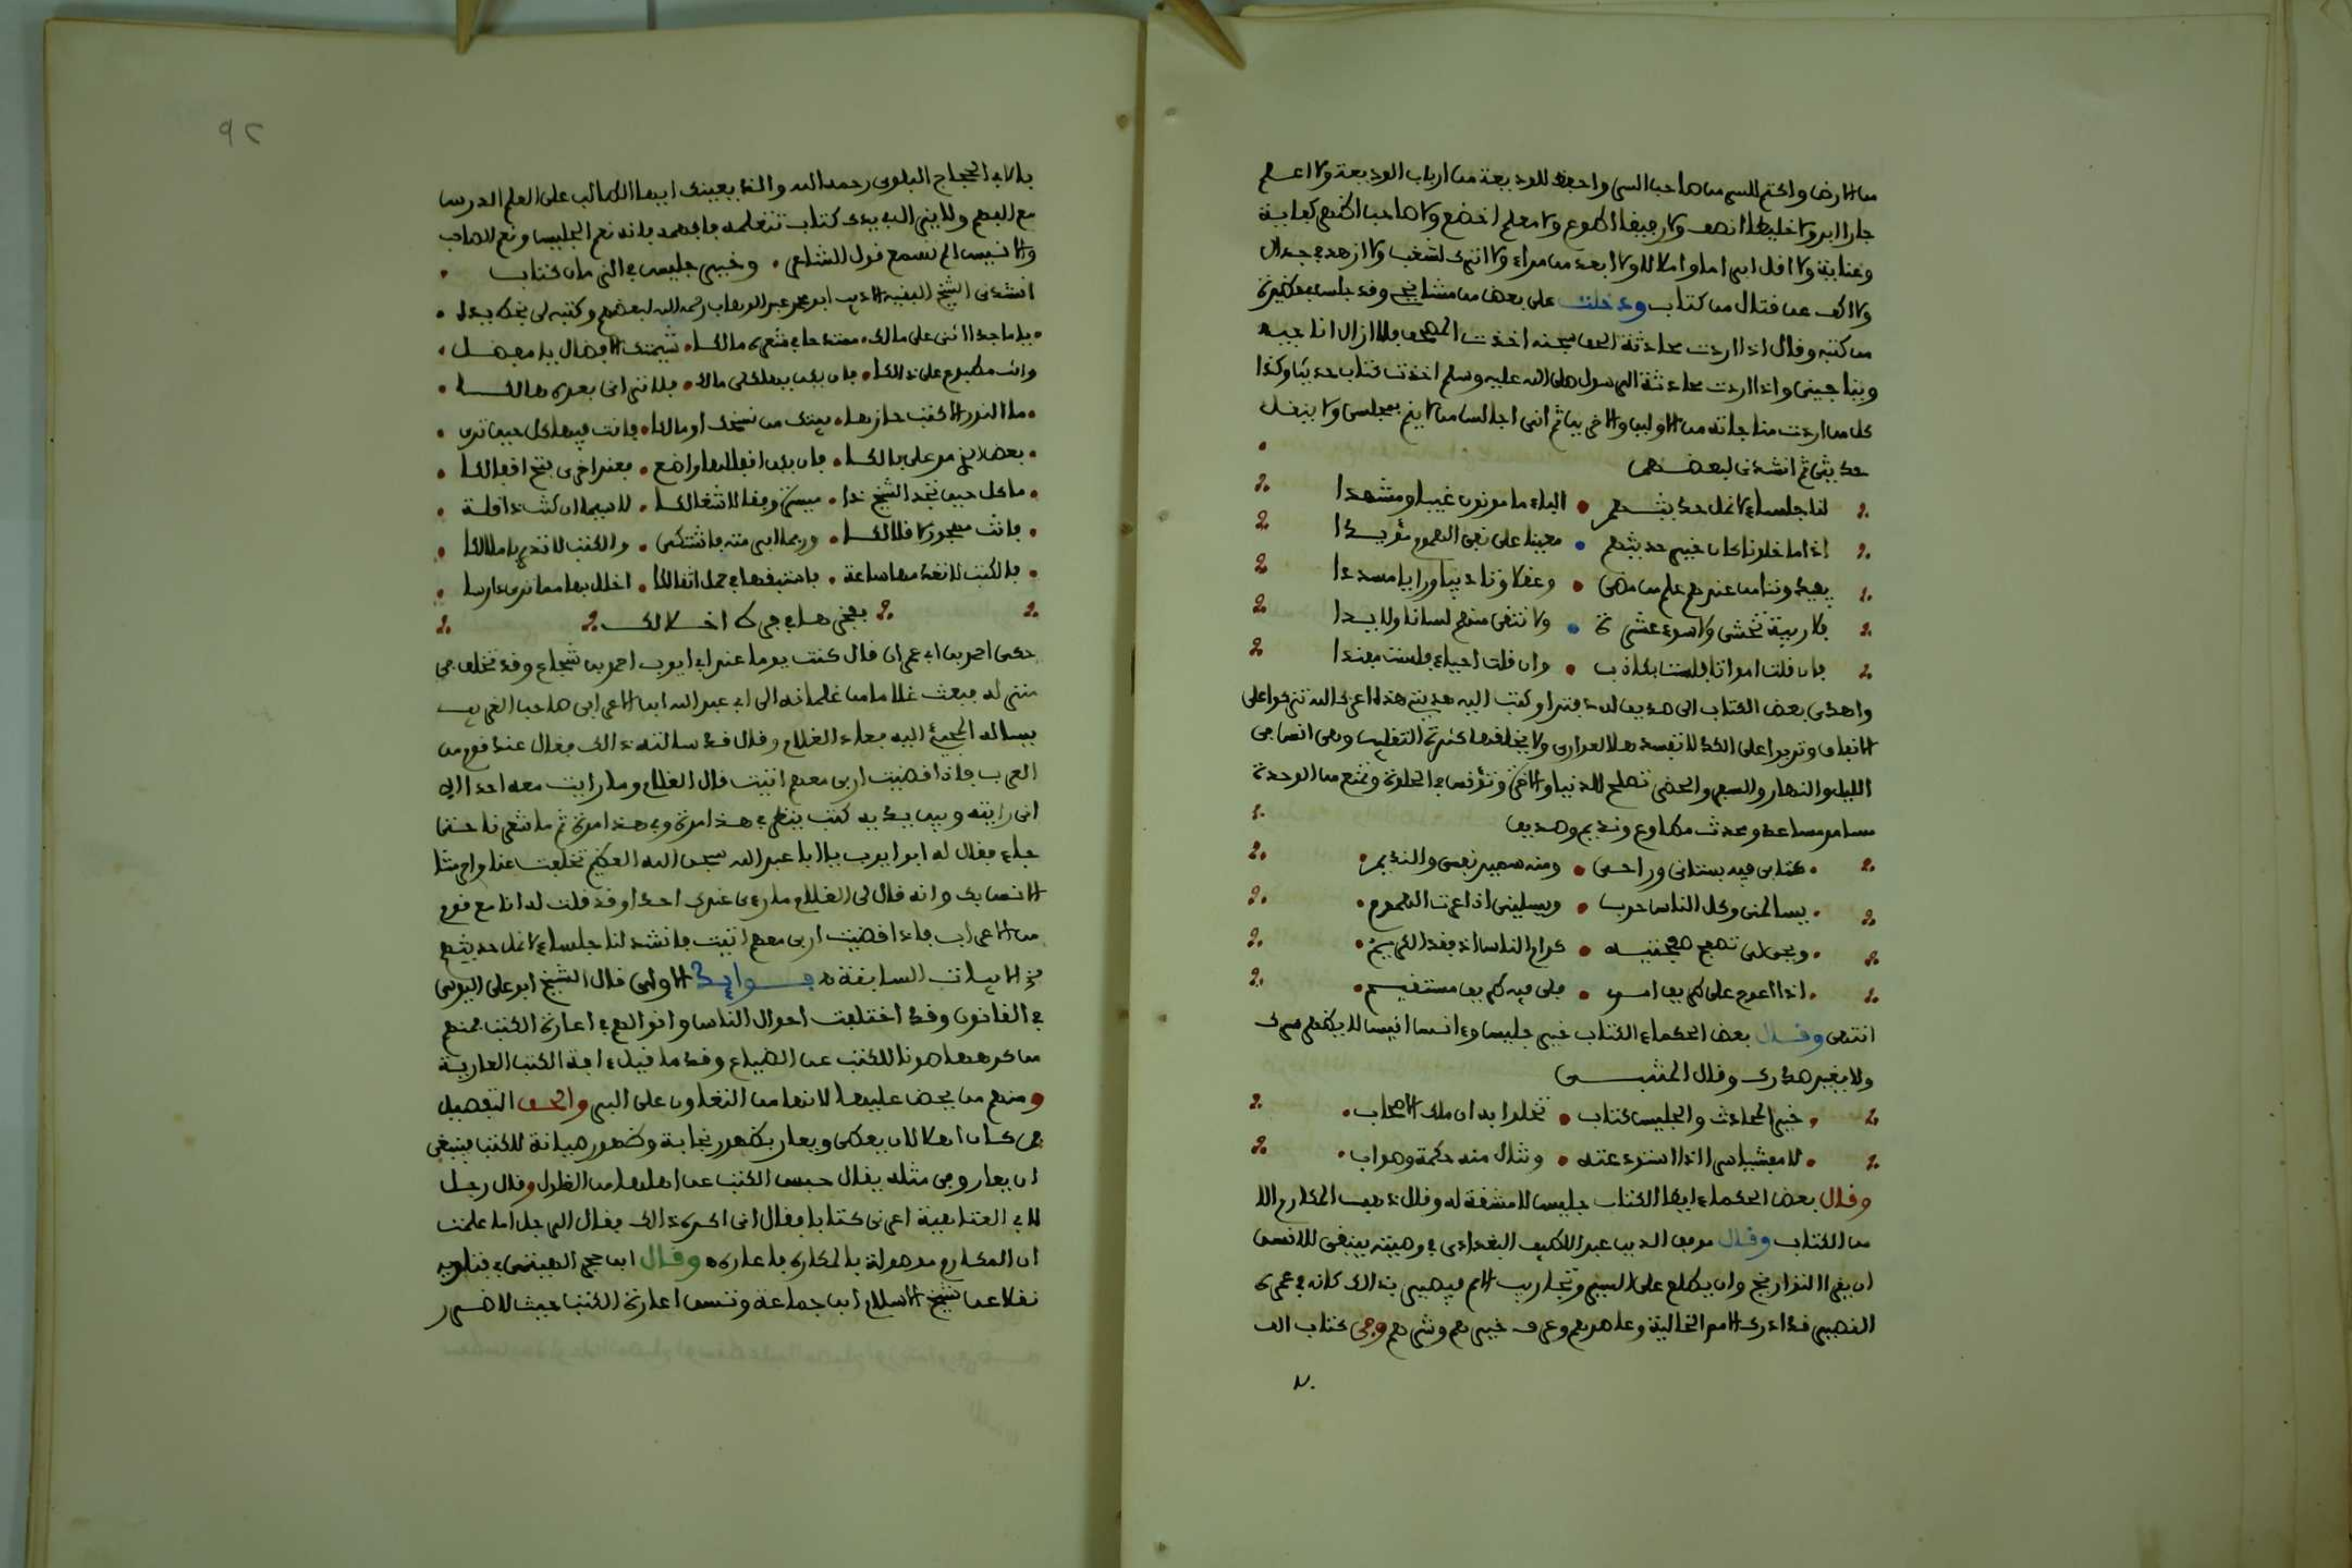 من الارض واكتم للسر من صاحب السر واحفظ للوديعة من ارباب الوديعة ولا اعلم
جارا ابر ولا خليطا انصف ولا رفيقا اطوع ولا معلم اخضع ولا صاحبا اظهر كفاية
وعناية ولا اقل ابراما واملالا ولا ابعد من مراء ولا اترك لشغب ولا ازهد في جدال
ولا اكف عن قتال من كتاب ودخلت على بعض من مشايخي وقد جلس بين كثيرة
من كتبه وقال اذا اردت محادثة الحق سبحنه اخذت المصحف فلا ازال اناجيه
ويناجيني واذا اردت محادثة الرسول صلى الله عليه وسلم اخذت كتاب حديث وكذا
كل من اردت مناجاته من الاولين والاخرين ثم انى اجالس من لا ينم بمجلسى ولا ينقل
حديثى ثم انشدنى لبعضهم
لنا جلساء لا نمل حديثهم • الباء مامونون غيبا ومشهدا
اذا ما خلونا كان خير حديثهم • معينا على نفى الهموم مؤيدا
يفيدوننا من عندهم علم من مضى • وعقلا وتاديبا ورايا مسددا
فلا ريبة تخشى ولا سوء عشرة • ولا نتقى منهم لسانا ولا يدا
فان قلت امواتا فلست بكاذب • وان قلت احياء فلست مفندا
واهدى بعض الكتاب الى صديق له دفترا وكتب اليه هديتى هذه اعزك الله تزكوا على
الانفاق وتربوا على الكد لا تفسدها العوارى ولا يخلقها كثرة التقليب وهى انس فى
الليل والنهار والسفر والحضر تصلح للدنيا والاخرة وتؤنس فى الخلوة وتمنع من الوحدة
مسامر مساعد ومحدث مطاوع ونديم وصديق
• كتابى فيه بستانى وراحى • ومنه سمير نفسى والنديم •
• يسالمنى وكل الناس حرب • ويسلينى اذا عرت الهموم •
• ويحيى لى تصفح صفحتيه • كرام الناس اذ فقد الكريم •
• اذا اعوج على طريق امرى • فلى فيه طريق مستقيم •
انتهى وقال بعض الحكماء الكتاب خير جليس وءانس انيس لا يظهر سرك
ولا يفير صدرك وقال المتنبى
• خير المحادث والجليس كتاب • تخلوا به ان ملك الاصحاب •
• لا مفشيا سرا اذا استودعته • وتنال منه حكمة وصواب •
وقال بعض الحكماء ايضا الكتاب جليس لا مشقة له وقال ذهب المكارم الا
من الكتاب وقال موفق الدين عبد اللطيف البغدادى فى وصيته ينبغى للانسن
ان يقرا التواريخ وان يطلع على السير وتجاريب الامم فيصير بذالك كانه فى عمره
القصير قد ادرك الامم الخالية وعاصرهم وعرف خيرهم وشرهم وفى كتاب الف
٩٢
باء لابى الحجاج البلوى رحمه الله والذى يعينك ايها الطالب على العلم الدرس
مع الفهم ولا يزال بيدك كتاب تتعلمه فافهمه فانه نعم الجليس ونعم الصاحب
والانيس الم تسمع قول الشاعر • وخير جليس فى الزمان كتاب •
انشدنى الشيخ الفقيه الاديب ابو محمد عبد الوهاب رحمه الله لبعضهم وكتبه لى بخط يده •
• يا ماجدا اثنى على مالك • معتدحا فى شعره مالكا • شيمتك الافضال يا مفضل •
وانت مطبوع على ذالكا • فان يكن يصلح لى مالك • فلا ترانى بعده هالكا •
• ما النور الا كتب حازها • بيتك من نسخك او مالكا • فانت فيها كل حين ترى •
• بعضا يزمر على بالكا • فان يكن اقفالها واضع • فعندا خرى بفتح اقفالكا •
• ما كل حين تجد الشيخ ذا • ميسرة وفقا لاشغالكا • لا سيما ان كنت ذا قلة •
• فانت مهجور لا قلالكا • وربما ابرمته فاشتكى • والكتب لا تدرى باملالكا •
• فالكتب لا تغد منها ساعة • فاستبقها فى حمل اثقالكا • اخلل بها مهما ترى دارسا •
بعض هاوى كاخلالك
حكى احمد بن ابى عمران قال كنت يوما عند ابى ايوب احمد بن شجاع وقد تخلف فى
منزله فبعث غلاما من غلمانه الى ابى عبد الله ابن الاعرابى صاحب الغريب
يساله المجىء اليه فعاد الغلام وقال قد سالته ذالك فقال عندى قوم من
العرب فاذا قضيت اربى معهم اتيت قال الغلام وما رايت معه احدا الا
انى رايته وبين يديه كتب ينظر فى هذا مرة وفى هذا مرة ثم ما شعرنا حتى
جاء فقال له ابو ايوب يا ابا عبد الله سبحن الله العظيم تخلفت عنا واحرمتنا
الانس بك وانه قال لى الغلام ما رءى عندك احدا وقد قلت له انا مع قوم
من الاعراب فاذا قضيت اربى معهم اتيت فانشد لنا جلساء لا نمل حديثهم
الابيات السابقة فوايد الاولى قال الشيخ ابو على اليوسى
فى القانون وقد اختلفت احوال الناس واقوالهم فى اعارة الكتب فمنهم
من كرهها صونا للكتب عن الضياع وقد ما قيل ءافة الكتب العارية
ومنهم من يحض عليها لانها من التعاون على البر والحق التفصيل
فمن كان اهلا لان يعطى ويعار بظهور نجابة وظهور صيانة للكتب فينبغى
ان يعار وفى مثله يقال حبس الكتب عن اهلها من الغلول وقال رجل
لابى العتاهية اعرنى كتابا فقال انى اكره ذالك فقال الرجل اما علمت
ان المكارم موصولة بالمكاره فاعاره وقال ابن حجر الهيتمى فى فتاويه
نقلا عن شيخ الاسلام ابن جماعة وتسن اعارة الكتب حيث لا ضرر